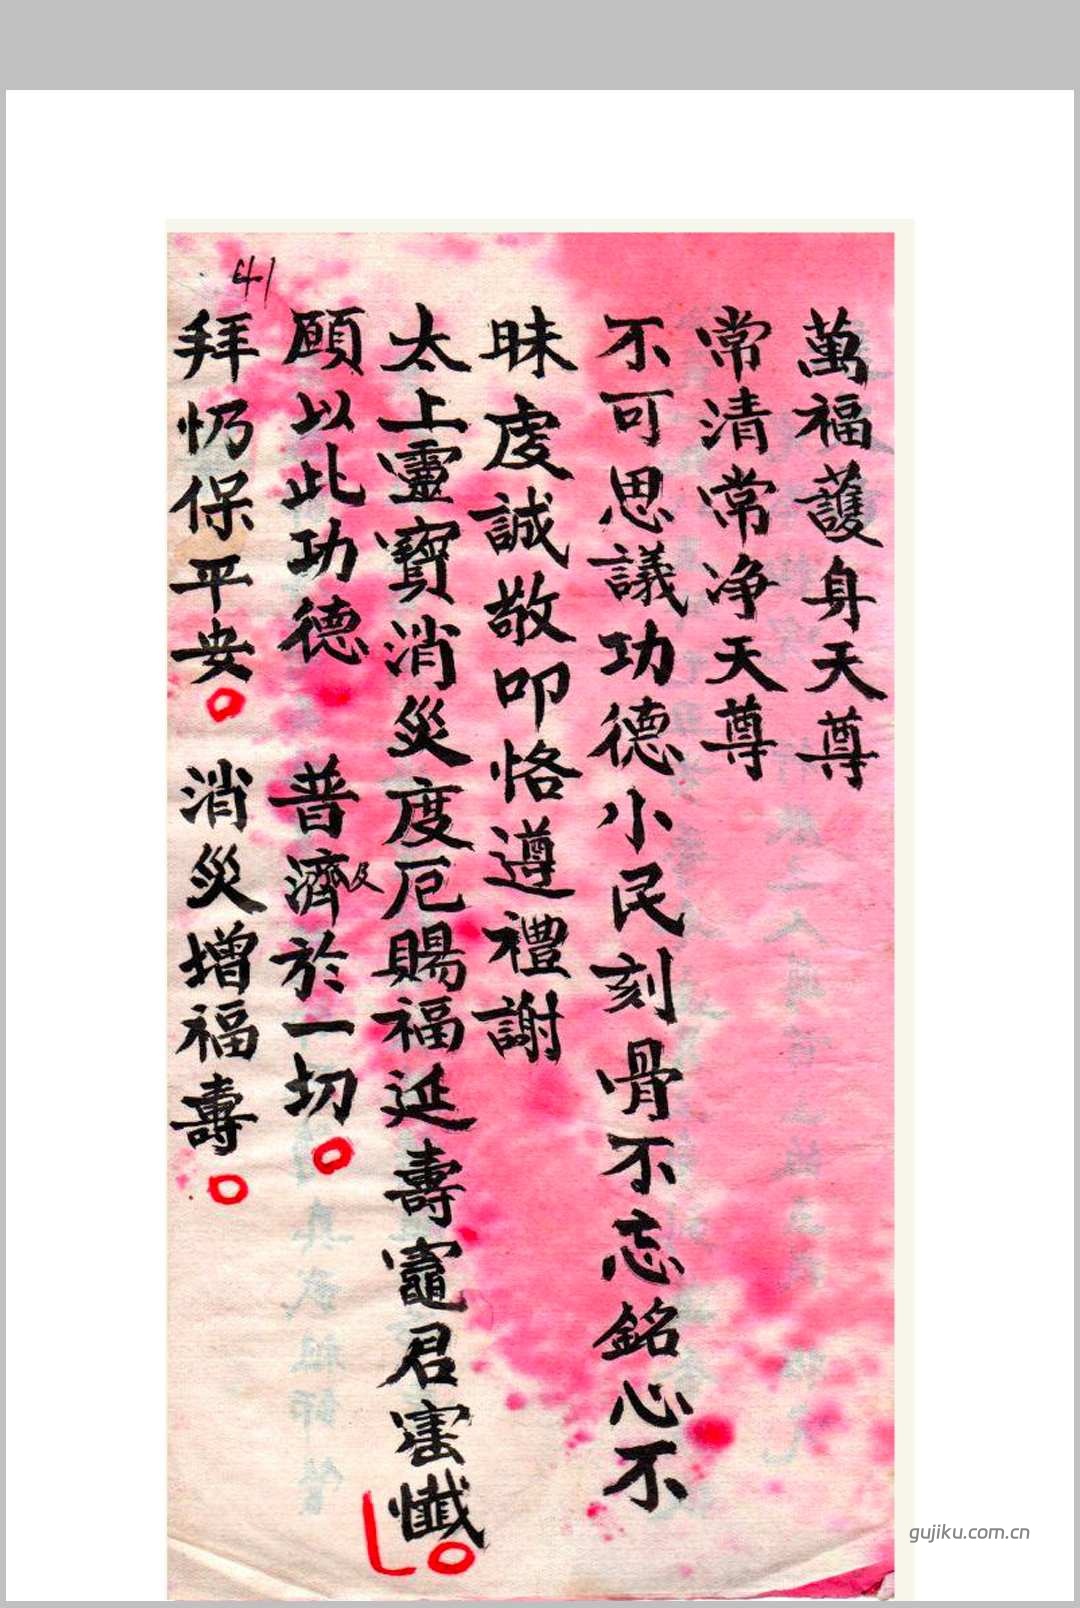 41
萬福護身天尊
常清常净天尊
不可思議功德小民刻骨不忘銘心不
昧虔誠敬叩恪遵禮謝
太上靈寳消災度厄賜福延壽竈君寚懺
願以此功德 普濟及於一切
拜保平安 消災增福壽
gujiku.com.cn